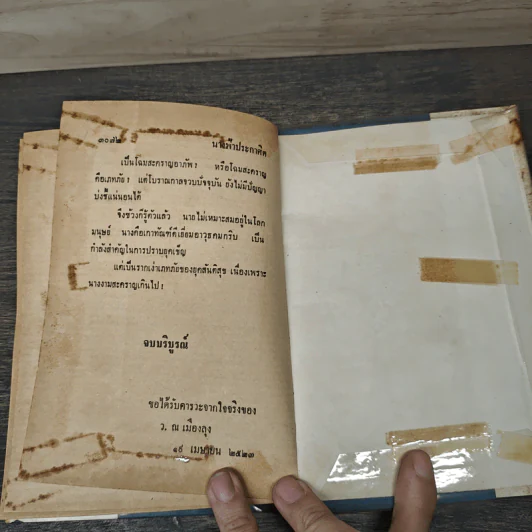 ๓๐๗๒
นางพญาประกาศิต
เป็นโฉมสะคราญอาภัพ! หรือโฉมสะคราญ
คือเภทภัย! แต่โบราณกาลจวบปัจจุบัน ยังไม่มีปัญญา
บ่งชี้แน่นอนได้
จึงช้วงก็รู้ตัวแล้ว นางไม่เหมาะสมอยู่ในโลก
มนุษย์ นางคือเกาทัณฑ์คือเอาวุธคมกริบ เป็น
กำลังสำคัญในการปราบยุคเข็ญ
แต่เป็นรากเง่าเภทภัยของยุคสันติสุข เนื่องเพราะ
นางงามสะคราญเกินไป!
จบบริบูรณ์
ขอได้รับคารวะจากใจจริงของ
ว. ณ เมืองลุง
๑๙ เมษายน ๒๕๒๓